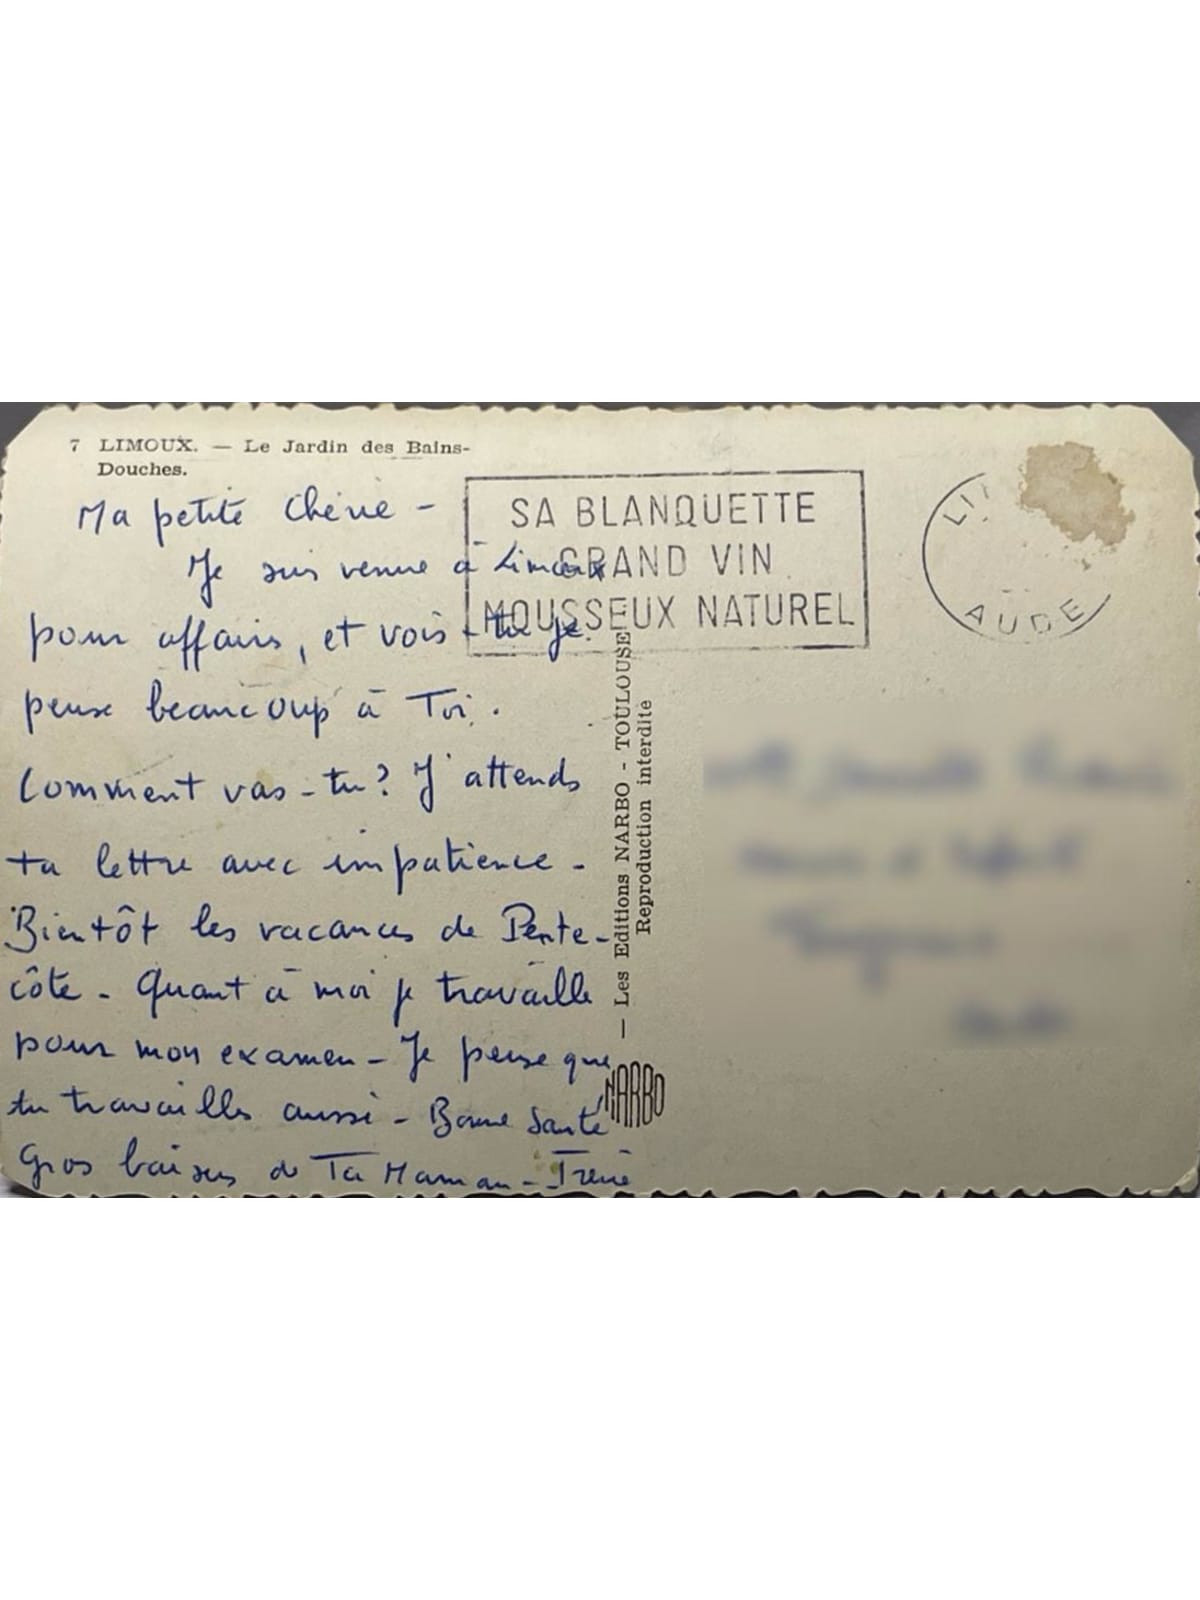 7 LIMOUX. — Le Jardin des Bains-
Douches.
SA BLANQUETTE
GRAND VIN
MOUSSEUX NATUREL
LI
AUDE
Ma petite Chérie -
Je suis venue à Limoux
pour affairs, et vois-tu je
pense beaucoup à Toi.
Comment vas-tu? J'attends
ta lettre avec impatience -
Bientôt les vacances de Pente-
côte - Quant à moi je travaille
pour mon examen - Je pense que
tu travailles aussi - Bonne Santé
Gros baisers de Ta Maman - Irène
— Les Editions NARBO - TOULOUSE
Reproduction interdite
NARBO